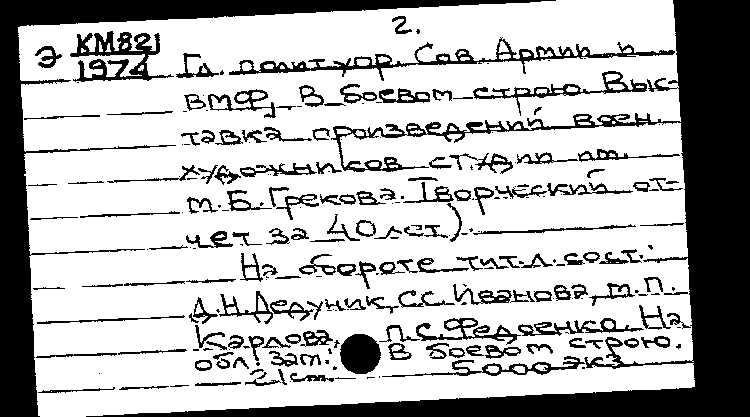 2.
Э КМ821
1974
Гл. полит. упр. Сов. Армии и
ВМФ, В боевом строю. Выс-
тавка произведений воен.
художников студии им.
М.Б. Грекова. Творческий от-
чет за 40 лет).
На обороте тит. л. сост.:
Д.Н. Дедуник, С.С. Иванова, М.П.
Карлова, П.С. Федоенко. На
обл.: Заг.: В боевом строю.
21 cm. 5000 экз